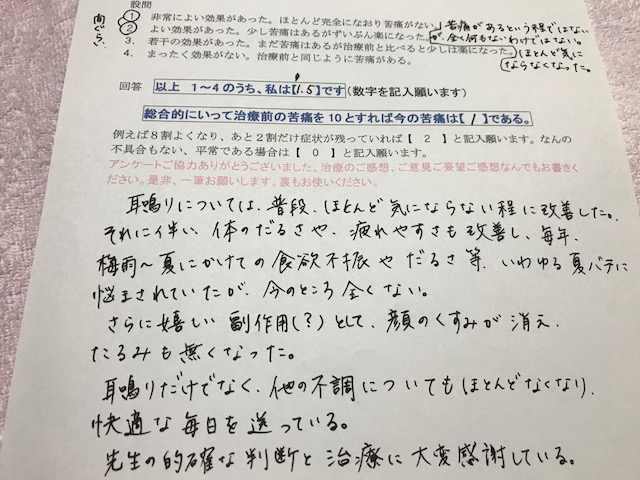 設問
向ぐらい
1. 非常によい効果があった。ほとんど完全になおり苦痛がない。
2. よい効果があった。少し苦痛はあるがずいぶん楽になった。
3. 若干の効果があった。まだ苦痛はあるが治療前と比べると少しは楽になった。
4. まったく効果がない。治療前と同じように苦痛がある。
苦痛があるという程ではない
が、全く何もないわけではない。
ほとんど気に
ならなくなった。
回答 以上 1～4のうち、私は【1.5】です(数字を記入願います)
総合的にいって治療前の苦痛を10とすれば今の苦痛は【 1 】である。
例えば8割よくなり、あと2割だけ症状が残っていれば【 2 】と記入願います。なんの
不具合もない、平常である場合は【 0 】と記入願います。
アンケートご協力ありがとうございました。治療のご感想、ご意見ご要望ご感想なんでもお書きく
ださい。是非、一筆お願いします。裏もお使いください。
耳鳴りについては、普段、ほとんど気にならない程に改善した。
それに伴い、体のだるさや、疲れやすさも改善し、毎年、
梅雨～夏にかけての食欲不振やだるさ等、いわゆる夏バテに
悩まされていたが、今のところ全くない。
さらに嬉しい副作用(?)として、顔のくすみが消え、
たるみも無くなった。
耳鳴りだけでなく、他の不調についてもほとんどなくなり、
快適な毎日を送っている。
先生の的確な判断と治療に大変感謝している。